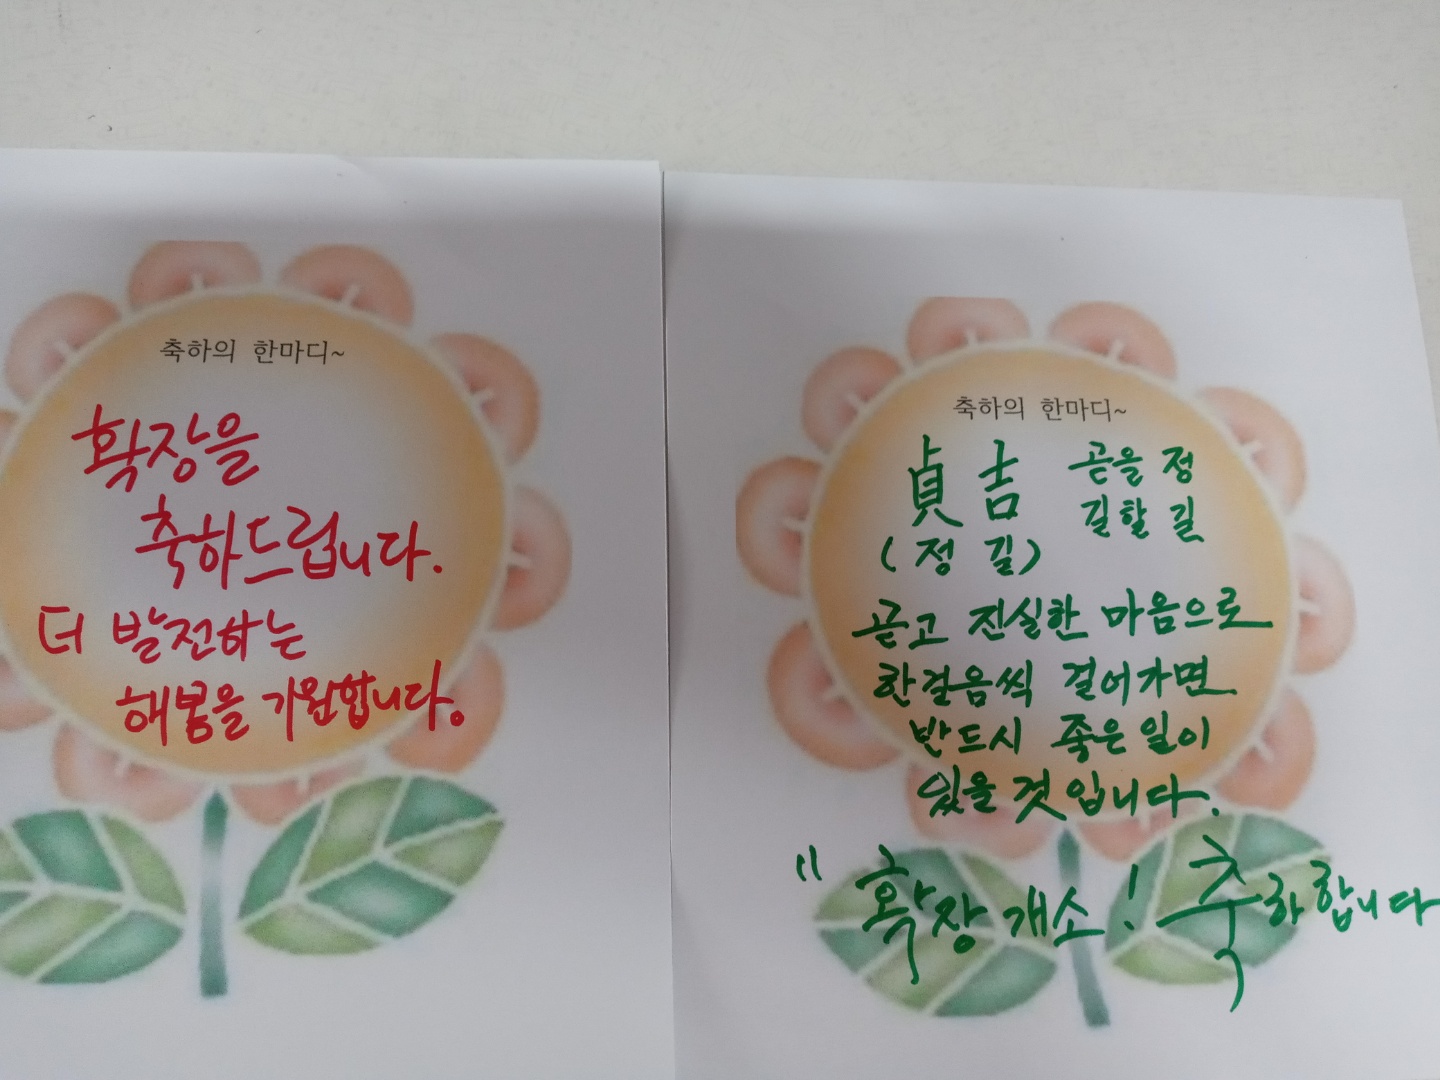 축하의 한마디~
확장을
축하드립니다.
더 발전하는
해봄을 기원합니다.
축하의 한마디~
貞 吉 곧을 정
길할 길
(정 길)
곧고 진실한 마음으로
한걸음씩 걸어가면
반드시 좋은 일이
있을 것입니다.
" 확장 개소! 축하합니다